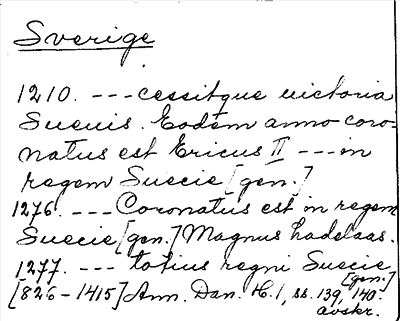 Sverige
1210. --- cessitque uictoria
Sueuis. Eodem anno coro-
natus est Ericus II --- in
regem Suecie [gen.]
1276. --- Coronatus est in regem
Suecie [gen.] Magnus hadelaas.
1277. --- totius regni Suecie
[gen.]
[826-1415] Ann. Dan. H. 1, ss. 139, 140.
avskr.